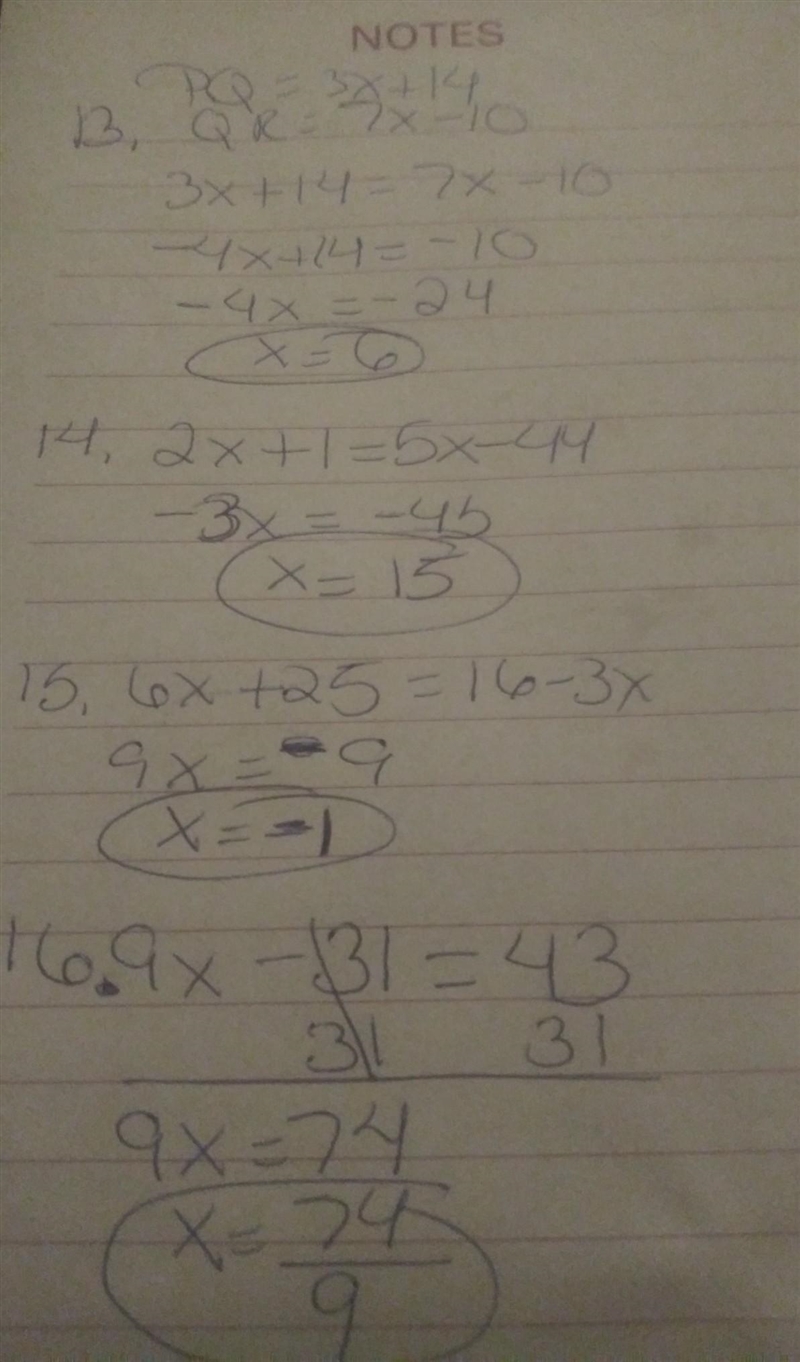 NOTES
PQ = 3x+14
13. QR = 7x-10
3x+14 = 7x-10
-4x+14 = -10
-4x = -24
x = 6
14. 2x+1=5x-44
-3x = -45
x = 15
15. 6x+25 = 16-3x
9x = -9
x = -1
16. 9x - 31 = 43
31 31
9x = 74
x = 74
9